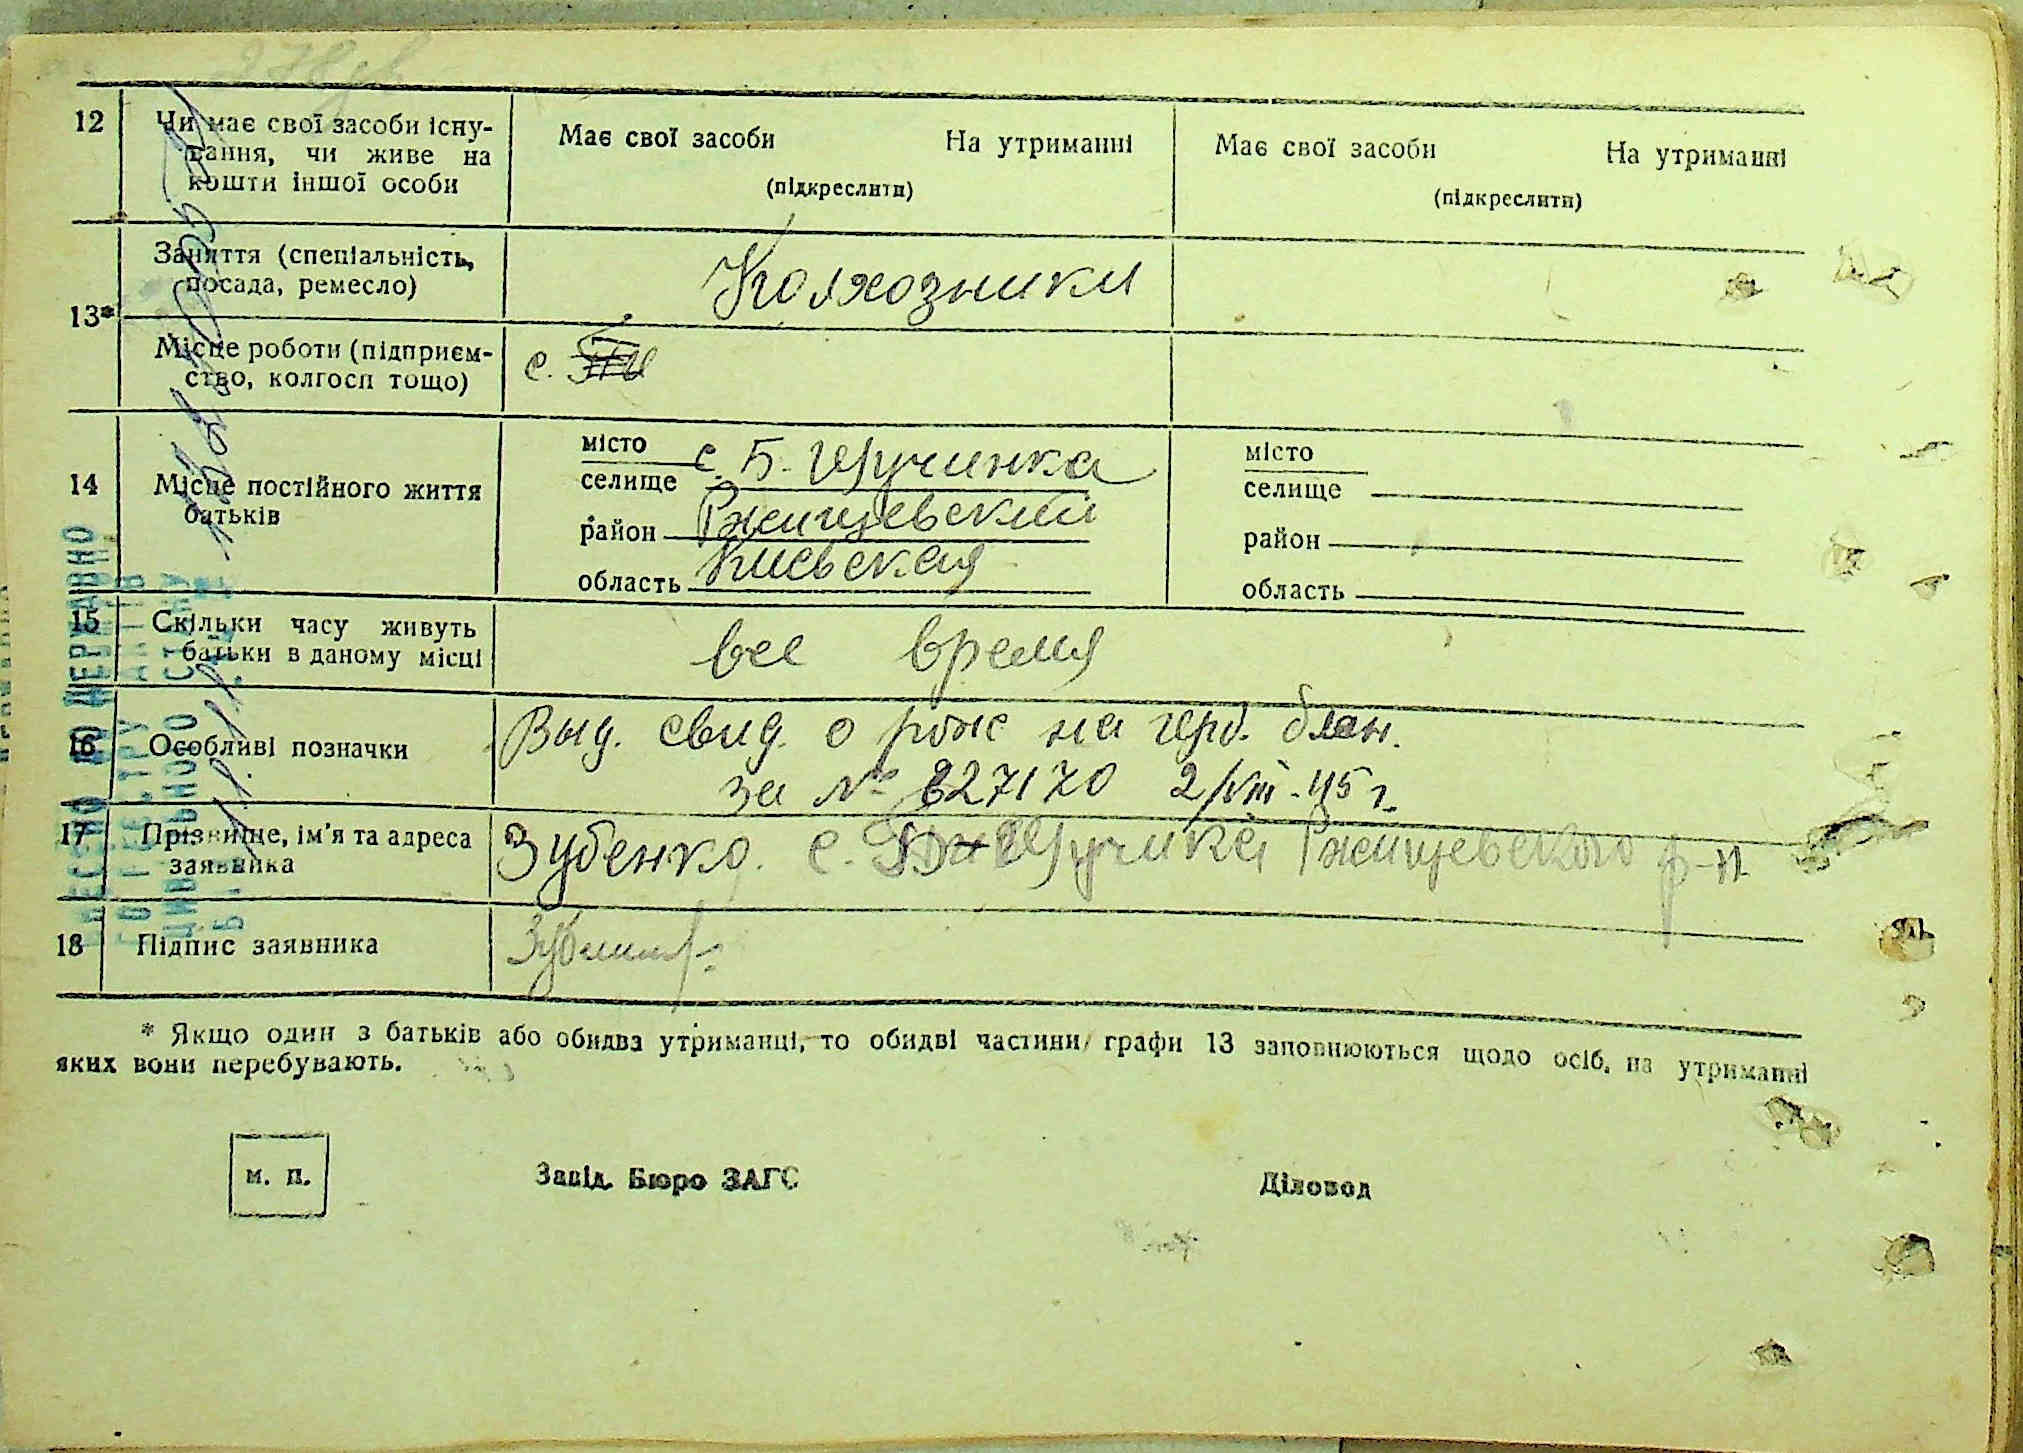 12
Чи має свої засоби існу-
вання, чи живе на
кошти іншої особи
Має свої засоби На утриманні
(підкреслити)
Має свої засоби На утриманні
(підкреслити)
13*
Заняття (спеціальність,
посада, ремесло)
Колхозники
Місце роботи (підприєм-
ство, колгосп тощо)
с.
14
Місце постійного життя
батьків
місто
селище с. Б.
район Ржищевский
область Киевская
місто
селище
район
область
15
Скільки часу живуть
батьки в даному місці
все время
16
Особливі позначки
Выд. свид. о рож на герб. блан.
за № 827170 2/VIII-45 г.
17
Прізвище, ім'я та адреса
заявника
Зубенко. с. Ржищевского р-н
18
Підпис заявника
* Якщо один з батьків або обидва утриманці, то обидві частини графи 13 заповнюються щодо осіб, на утриманні
яких вони перебувають.
м. п.
Завід. Бюро ЗАГС
Діловод
ВНЕСЕНО ДО ДЕРЖАВНО
ГО РЕЄСТРУ АКТІВ
ЦИВІЛЬНОГО СТАНУ